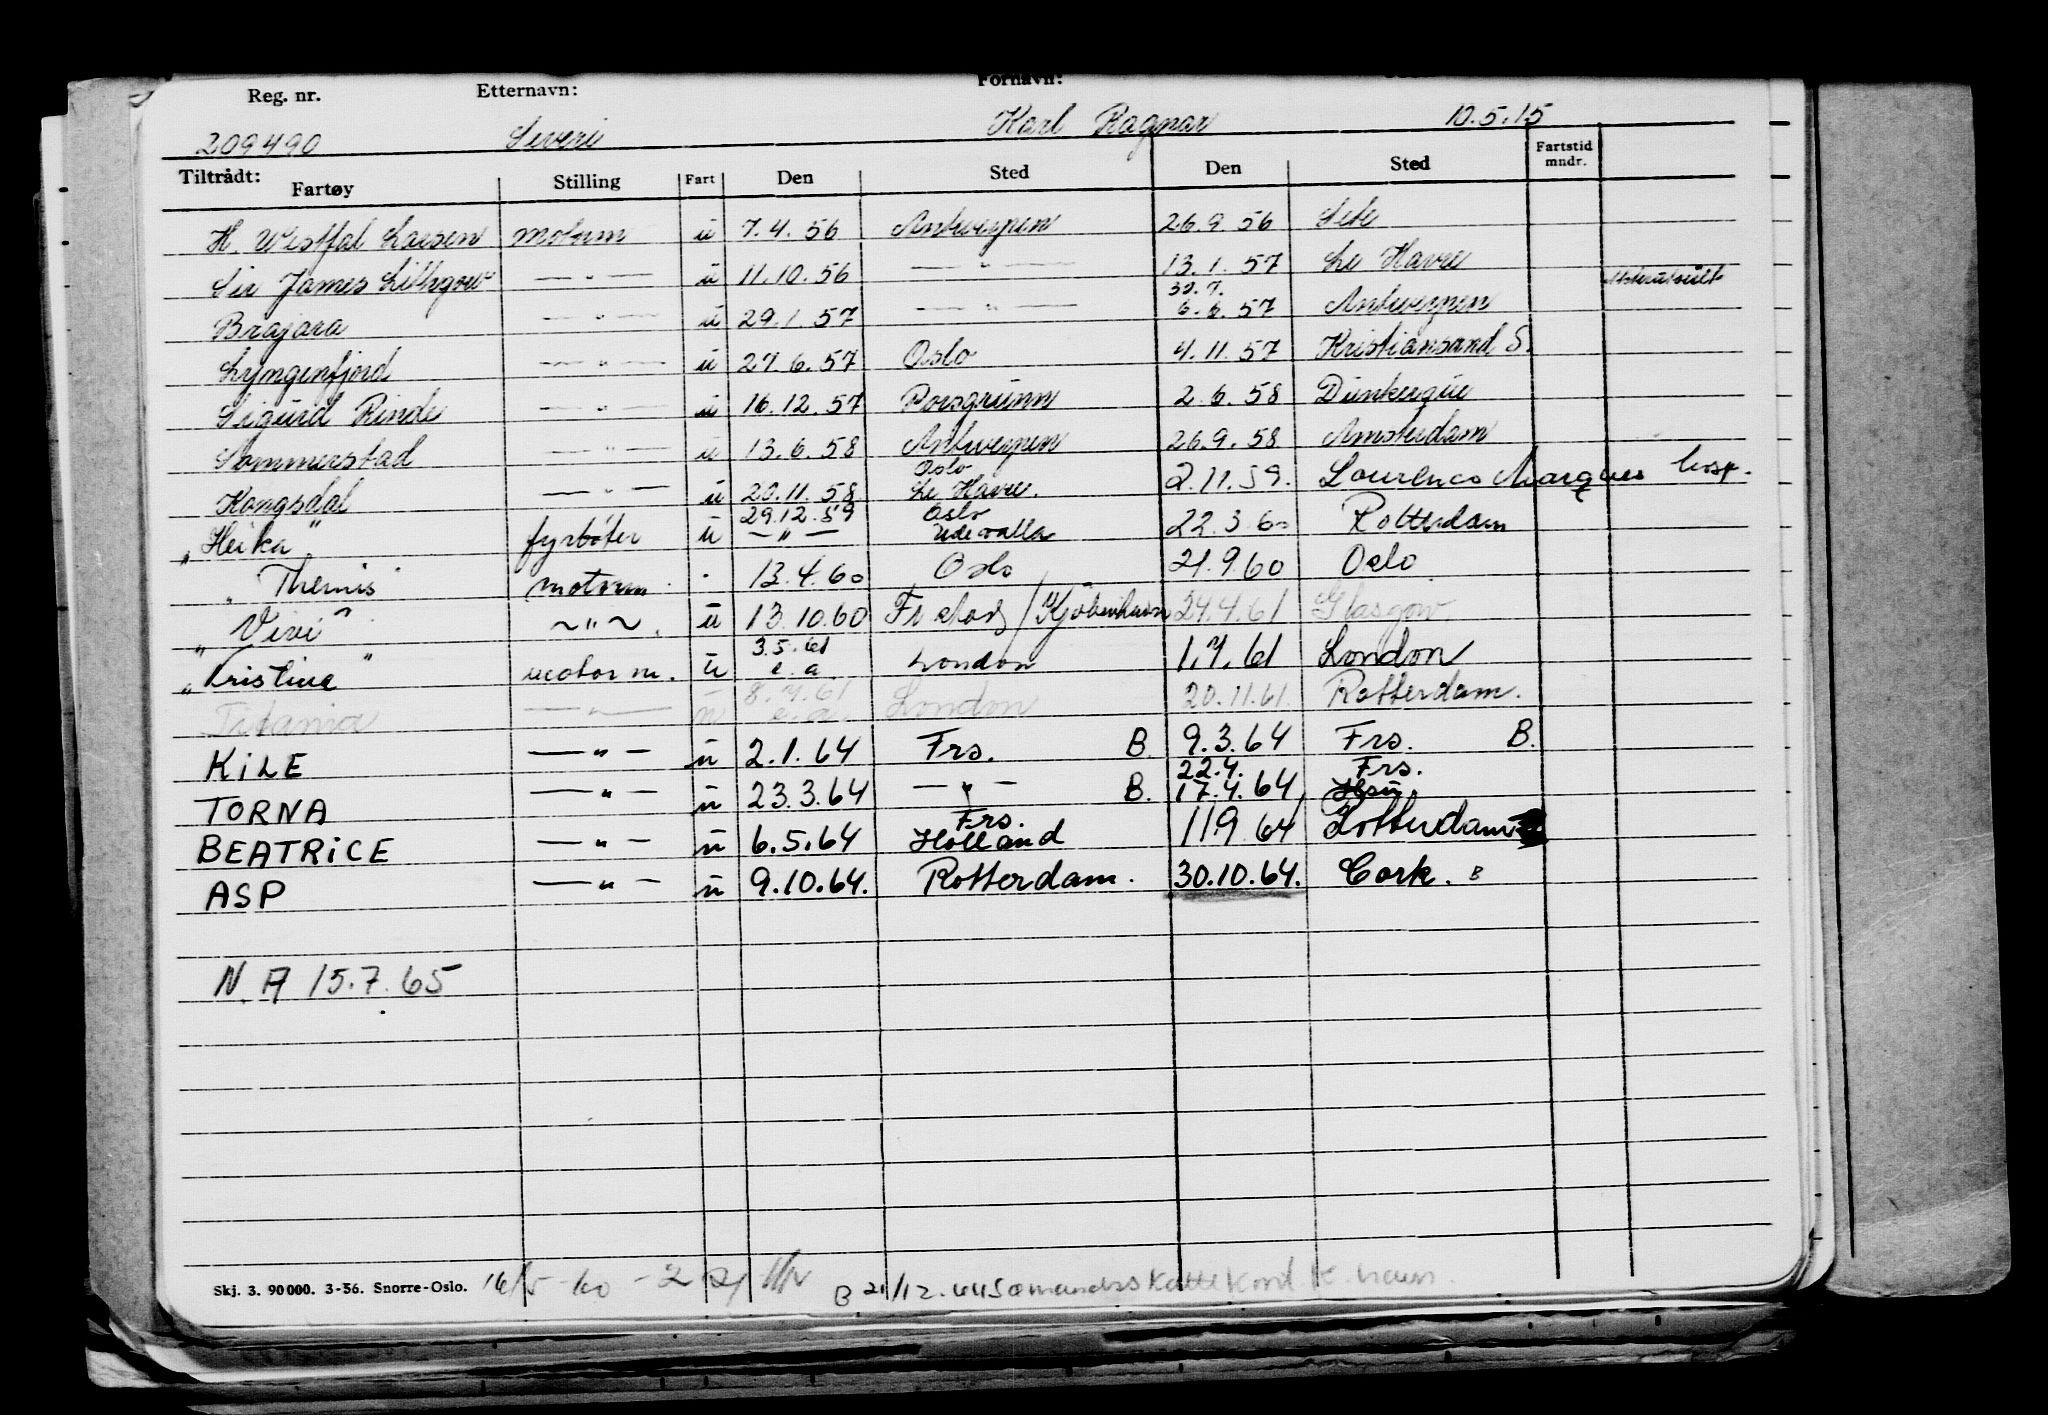 Reg. nr. Etternavn: Fornavn:
209490 Severi Karl Ragnar 10.5.15
Tiltrådt: Fartøy Stilling Fart Den Sted Den Sted Fartstid mndr.
H. Westfal Larsen motorm ü 7.4.56 Antwerpen 26.9.56 Sete
Sir James Lithgow — " — ü 11.10.56 — " — 13.1.57 Le Havre
30.7.
Brajara — " — ü 29.1.57 — " — 6.6.57 Antwerpen
Lyngenfjord — " — ü 27.6.57 Oslo 4.11.57 Kristiansand S.
Sigurd Rinde — " — ü 16.12.57 Porsgrunn 2.6.58 Dunkerque
Sommerstad — " — ü 13.6.58 Antwerpen 26.9.58 Amsterdam
Oslo
Kongsdal — " — ü 20.11.58 Le Havre. 2.11.59. Lourenco Marques hosp.
29.12.59 Oslo
"Heika" fyrbøter ü — " — Udevalla 22.3.60 Rotterdam
"Themis" motorm. 13.4.60 Oslo 21.9.60 Oslo
"Vivi" ~ " ~. ü 13.10.60 Fr.stad / Kjøbenhavn 24.4.61 Glasgow.
3.5.61
"Kristina" motorm. ü e.a. London 1.7.61 London
8.7.61
Titania — " — ü e.a. London 20.11.61. Rotterdam.
KILE — " — ü 2.1.64 Frs. B. 9.3.64 Frs. B.
22.4. Frs.
TORNA — " — ü 23.3.64 — " — B. 17.4.64
Frs.
BEATRICE — " — ü 6.5.64 Holland 11.9.64 Rotterdam
ASP — " — ü 9.10.64. Rotterdam. 30.10.64. Cork. B
N.A 15.7.65
Skj. 3. 90 000. 3-56. Snorre-Oslo. 16/5-60 B 21/12.64 Sømandsskattekont. K.havn.